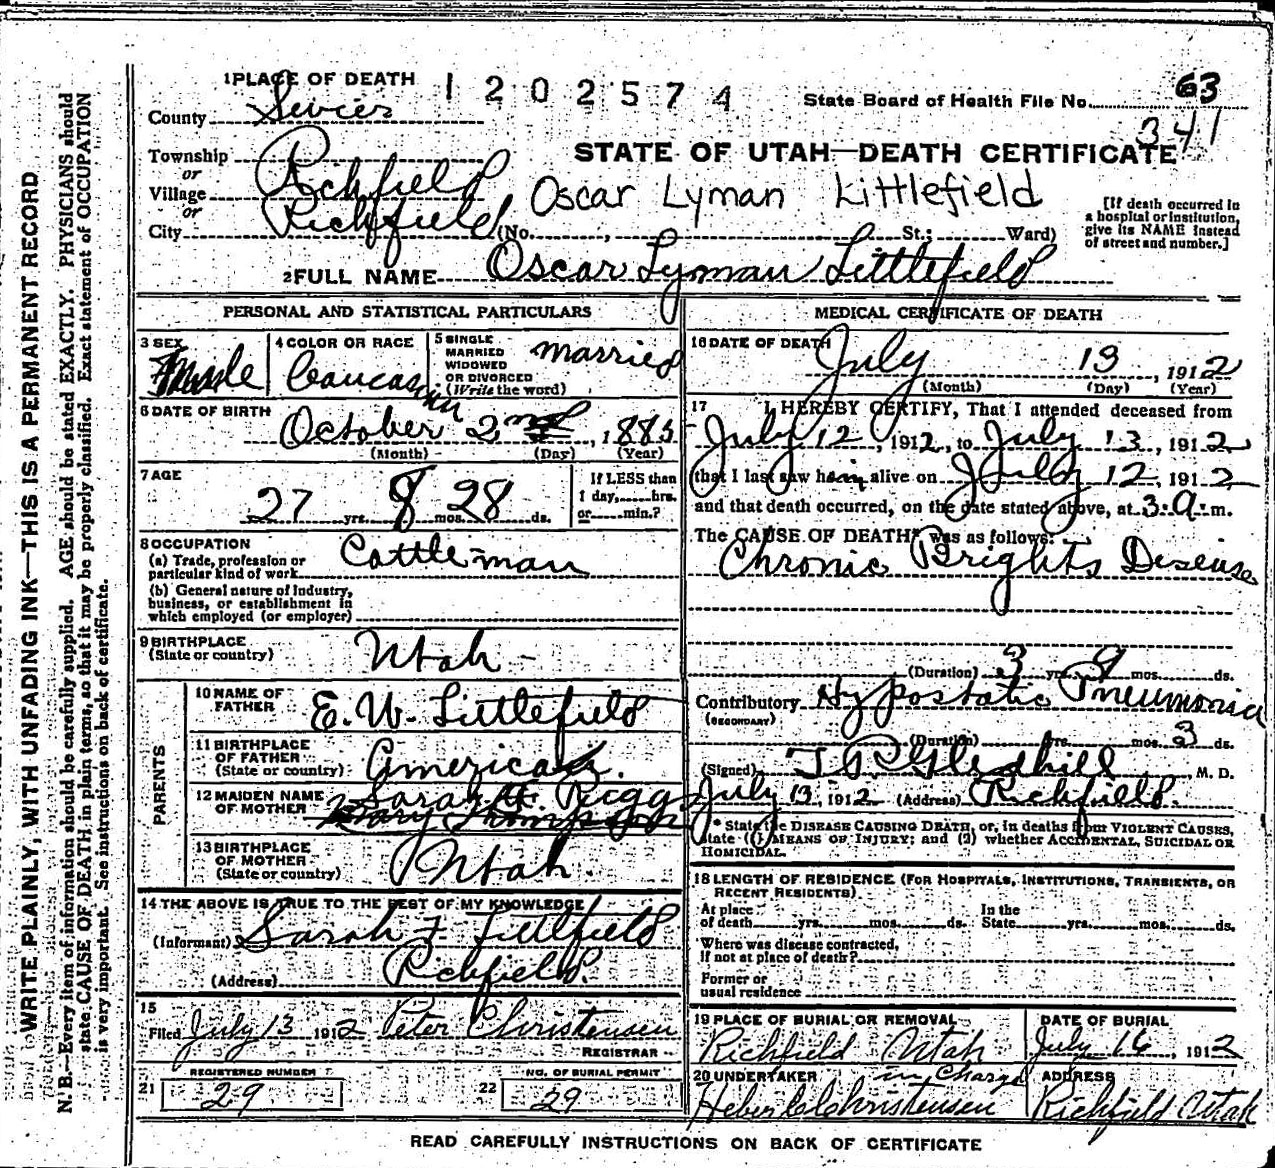 1 PLACE OF DEATH
1 2 0 2 5 7 4
State Board of Health File No. 63
341
County Sevier
STATE OF UTAH—DEATH CERTIFICATE
Township
or
Village Richfield
or
City Richfield (No. , St.; Ward)
Oscar Lyman Littlefield
[If death occurred in
a hospital or institution,
give its NAME instead
of street and number.]
2 FULL NAME Oscar Lyman Littlefield
PERSONAL AND STATISTICAL PARTICULARS
3 SEX Male
4 COLOR OR RACE Caucasian
5 SINGLE
MARRIED
WIDOWED
OR DIVORCED
(Write the word)
married
6 DATE OF BIRTH
October 2nd, 1885
(Month) (Day) (Year)
7 AGE
27 yrs. 8 mos. 28 ds.
If LESS than
1 day, hrs.
or min.?
8 OCCUPATION
(a) Trade, profession or
particular kind of work
Cattle-man
(b) General nature of Industry,
business, or establishment in
which employed (or employer)
9 BIRTHPLACE
(State or country)
Utah
PARENTS
10 NAME OF
FATHER
E. W. Littlefield
11 BIRTHPLACE
OF FATHER
(State or country)
America
12 MAIDEN NAME
OF MOTHER
Sarah
13 BIRTHPLACE
OF MOTHER
(State or country)
Utah.
14 THE ABOVE IS TRUE TO THE BEST OF MY KNOWLEDGE
(Informant) Sarah F Littlefield
(Address) Richfield.
15
Filed July 13 1912 Peter Christensen
REGISTRAR
REGISTERED NUMBER
21 29
NO. OF BURIAL PERMIT
22 29
MEDICAL CERTIFICATE OF DEATH
16 DATE OF DEATH
July 13, 1912
(Month) (Day) (Year)
17 I HEREBY CERTIFY, That I attended deceased from
July 12, 1912, to July 13, 1912
that I last saw him alive on July 12, 1912
and that death occurred, on the date stated above, at 3 a. m.
The CAUSE OF DEATH* was as follows:
Chronic Brights Disease
(Duration) 3 yrs. 9 mos. ds.
Contributory Hypostatic Pneumonia
(SECONDARY)
(Duration) yrs. mos. 3 ds.
(Signed) T. R. Gledhill, M. D.
July 13, 1912 (Address) Richfield.
* State the DISEASE CAUSING DEATH, or, in deaths from VIOLENT CAUSES,
state (1) MEANS OF INJURY; and (2) whether ACCIDENTAL, SUICIDAL OR
HOMICIDAL.
18 LENGTH OF RESIDENCE (FOR HOSPITALS, INSTITUTIONS, TRANSIENTS, OR
RECENT RESIDENTS)
At place
of death yrs. mos. ds.
In the
State yrs. mos. ds.
Where was disease contracted,
if not at place of death?
Former or
usual residence
19 PLACE OF BURIAL OR REMOVAL
Richfield Utah
DATE OF BURIAL
July 16, 1912
20 UNDERTAKER in Charge
Heber C Christensen
ADDRESS
Richfield Utah
READ CAREFULLY INSTRUCTIONS ON BACK OF CERTIFICATE
WRITE PLAINLY, WITH UNFADING INK—THIS IS A PERMANENT RECORD
N. B.—Every item of information should be carefully supplied. AGE should be stated EXACTLY. PHYSICIANS should
state CAUSE OF DEATH in plain terms, so that it may be properly classified. Exact statement of OCCUPATION
is very important. See instructions on back of certificate.